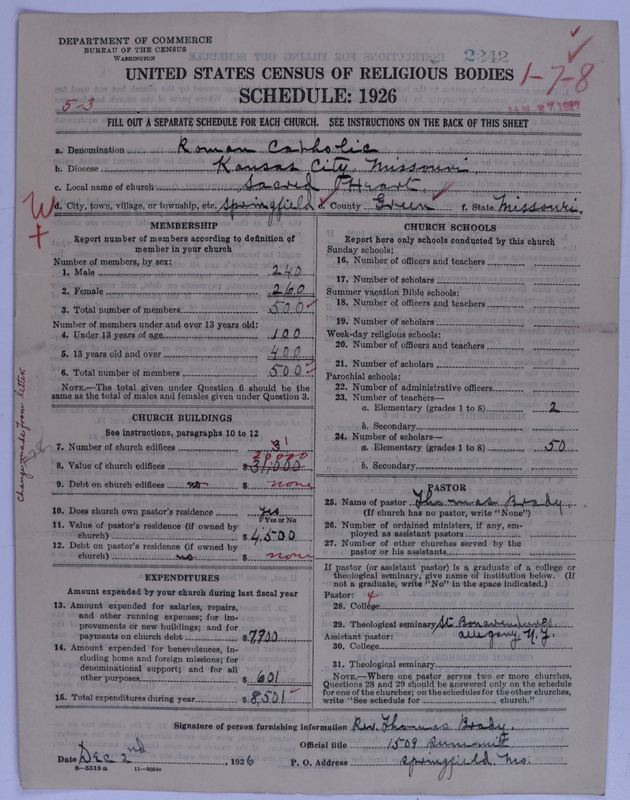 DEPARTMENT OF COMMERCE
BUREAU OF THE CENSUS
WASHINGTON
2242
1-7-8
UNITED STATES CENSUS OF RELIGIOUS BODIES
SCHEDULE: 1926
5-3
JAN 27 1927
FILL OUT A SEPARATE SCHEDULE FOR EACH CHURCH. SEE INSTRUCTIONS ON THE BACK OF THIS SHEET
a. Denomination Roman Catholic
b. Diocese Kansas City, Missouri
c. Local name of church Sacred Heart.
d. City, town, village, or township, etc. Springfield e. County Green f. State Missouri.
MEMBERSHIP
Report number of members according to definition of
member in your church
Number of members, by sex:
1. Male 240
2. Female 260
3. Total number of members 500
Number of members under and over 13 years old:
4. Under 13 years of age 100
5. 13 years old and over 400
6. Total number of members 500
NOTE.—The total given under Question 6 should be the
same as the total of males and females given under Question 3.
Change made from letter
CHURCH BUILDINGS
See instructions, paragraphs 10 to 12
7. Number of church edifices 3 1
20000
8. Value of church edifices $ 31,000
9. Debt on church edifices no $ none
10. Does church own pastor's residence? yes
Yes or No
11. Value of pastor's residence (if owned by
church) $ 4,500
12. Debt on pastor's residence (if owned by
church) no $ none
EXPENDITURES
Amount expended by your church during last fiscal year
13. Amount expended for salaries, repairs,
and other running expenses; for im-
provements or new buildings; and for
payments on church debt $ 7900
14. Amount expended for benevolences, in-
cluding home and foreign missions; for
denominational support; and for all
other purposes $ 601
15. Total expenditures during year $ 8,501
CHURCH SCHOOLS
Report here only schools conducted by this church
Sunday schools:
16. Number of officers and teachers
17. Number of scholars
Summer vacation Bible schools:
18. Number of officers and teachers
19. Number of scholars
Week-day religious schools:
20. Number of officers and teachers
21. Number of scholars
Parochial schools:
22. Number of administrative officers
23. Number of teachers—
a. Elementary (grades 1 to 8) 2
b. Secondary
24. Number of scholars—
a. Elementary (grades 1 to 8) 50
b. Secondary
PASTOR
25. Name of pastor Thomas Brady.
(If church has no pastor, write "None")
26. Number of ordained ministers, if any, em-
ployed as assistant pastors
27. Number of other churches served by the
pastor or his assistants
If pastor (or assistant pastor) is a graduate of a college or
theological seminary, give name of institution below. (If
not a graduate, write "No" in the space indicated.)
Pastor:
28. College
29. Theological seminary St. Bonaventure's
Assistant pastor: Allegany N.Y.
30. College
31. Theological seminary
NOTE.—Where one pastor serves two or more churches,
Questions 28 and 29 should be answered only on the schedule
for one of the churches; on the schedules for the other churches,
write "See schedule for church."
Signature of person furnishing information Rev. Thomas Brady.
Official title 1509 Summit
Date Dec 2nd, 1926 P. O. Address Springfield Mo.
8-5518a 11-9064a